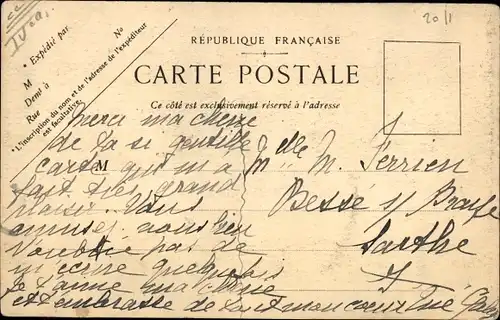 20/1
Nº
* Expédié par
M
Demt à
Rue
* L'inscription du nom et de l'adresse de l'expéditeur
est facultative.
RÉPUBLIQUE FRANÇAISE
CARTE POSTALE
Ce côté est exclusivement réservé à l'adresse
M
Merci ma chère
de ta si gentille
carte qui m'a
fait très grand
plaisir. Vous
amusez vous bien
N'oublie pas de
m'écrire quelquefois
Je t'aime ma chérie
et t'embrasse de tout mon coeur
Mlle M. Ferrien
Bessé s/ Braye
Sarthe